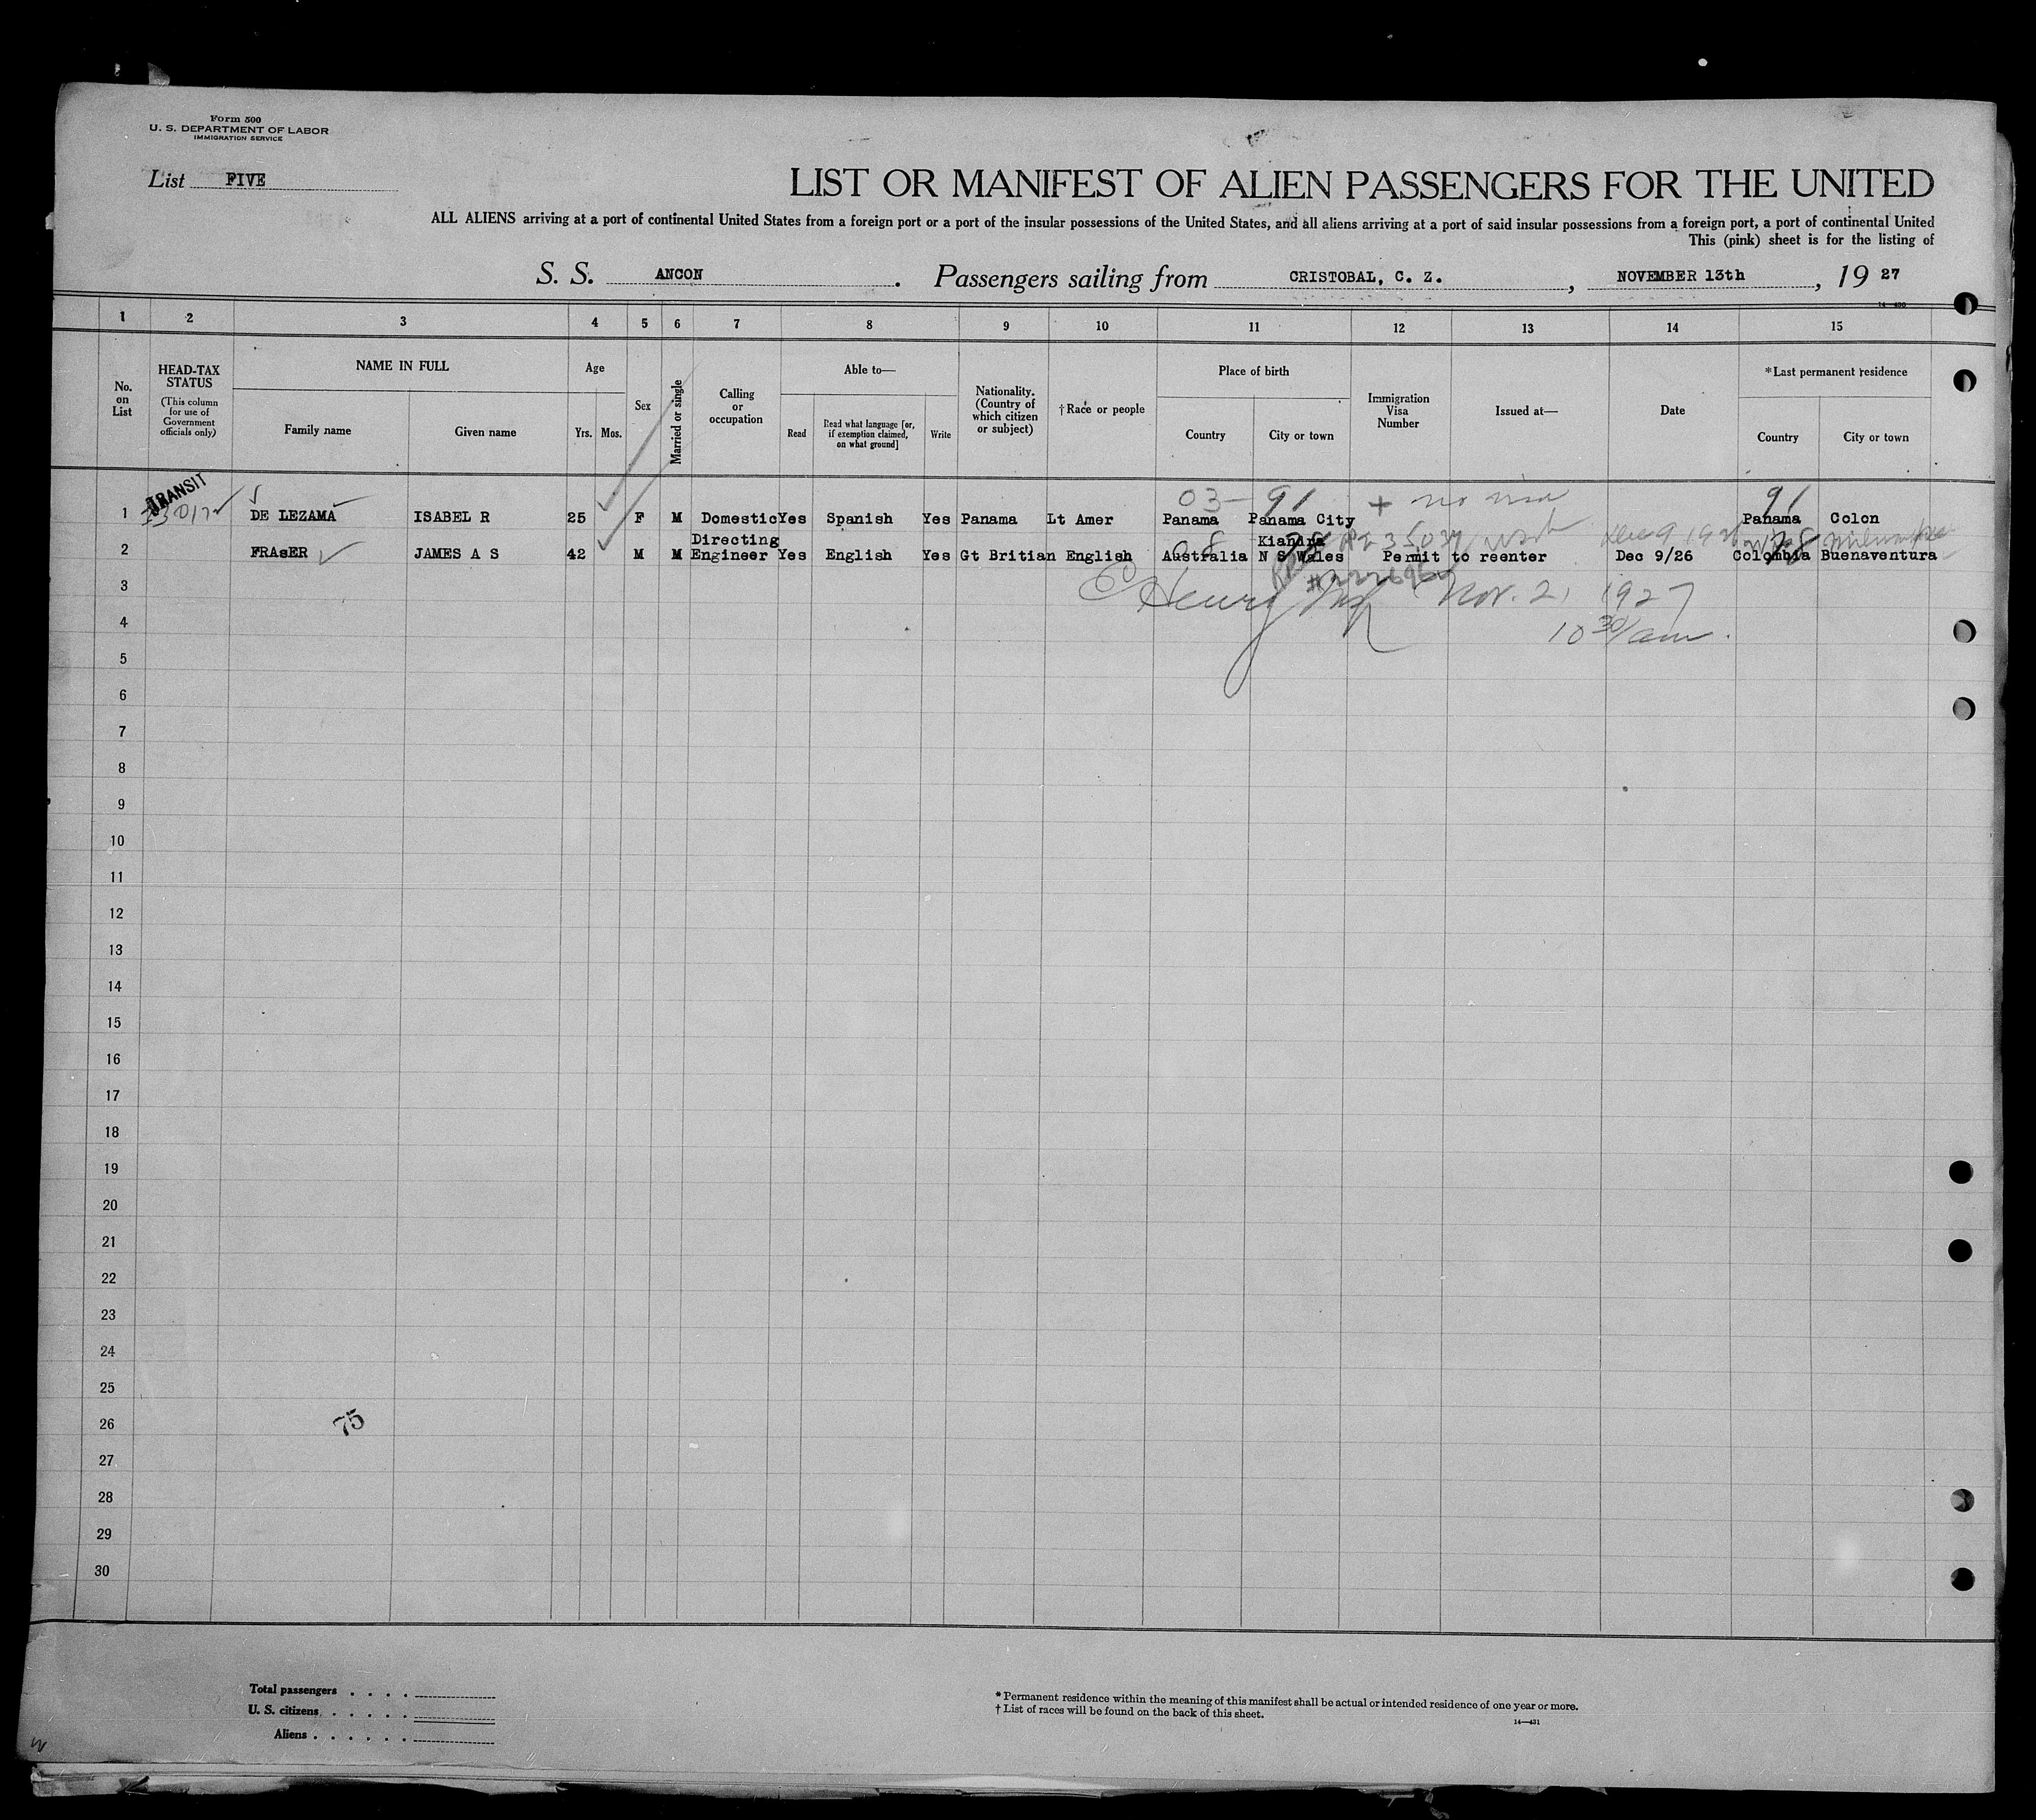 Form 500
U. S. DEPARTMENT OF LABOR
IMMIGRATION SERVICE
List FIVE
LIST OR MANIFEST OF ALIEN PASSENGERS FOR THE UNITED
ALL ALIENS arriving at a port of continental United States from a foreign port or a port of the insular possessions of the United States, and all aliens arriving at a port of said insular possessions from a foreign port, a port of continental United
This (pink) sheet is for the listing of
S. S. ANCON. Passengers sailing from CRISTOBAL, C. Z., NOVEMBER 13th, 19 27
14—430
1 2 3 4 5 6 7 8 9 10 11 12 13 14 15
No. on List
HEAD-TAX STATUS
(This column for use of Government officials only)
NAME IN FULL
Family name
Given name
Age
Yrs. Mos.
Sex
Married or single
Calling or occupation
Able to—
Read
Read what language [or, if exemption claimed, on what ground]
Write
Nationality. (Country of which citizen or subject)
†Race or people
Place of birth
Country
City or town
Immigration Visa Number
Issued at—
Date
*Last permanent residence
Country
City or town
TRANSIT
03— 91 + no visa 91
1 DE LEZAMA ISABEL R 25 F M Domestic Yes Spanish Yes Panama Lt Amer Panama Panama City Panama Colon
Directing Kiandra
08 Dec 9 192
2 FRAsER JAMES A S 42 M M Engineer Yes English Yes Gt Britian English Australia N S Wales Permit to reenter Dec 9/26 Colombia Buenaventura
3
Henry Nov. 21 1927
4
10 30/am.
5
6
7
8
9
10
11
12
13
14
15
16
17
18
19
20
21
22
23
24
25
26
75
27
28
29
30
Total passengers . . . .
U. S. citizens . . . . . .
Aliens . . . . . .
* Permanent residence within the meaning of this manifest shall be actual or intended residence of one year or more.
† List of races will be found on the back of this sheet.
14—431